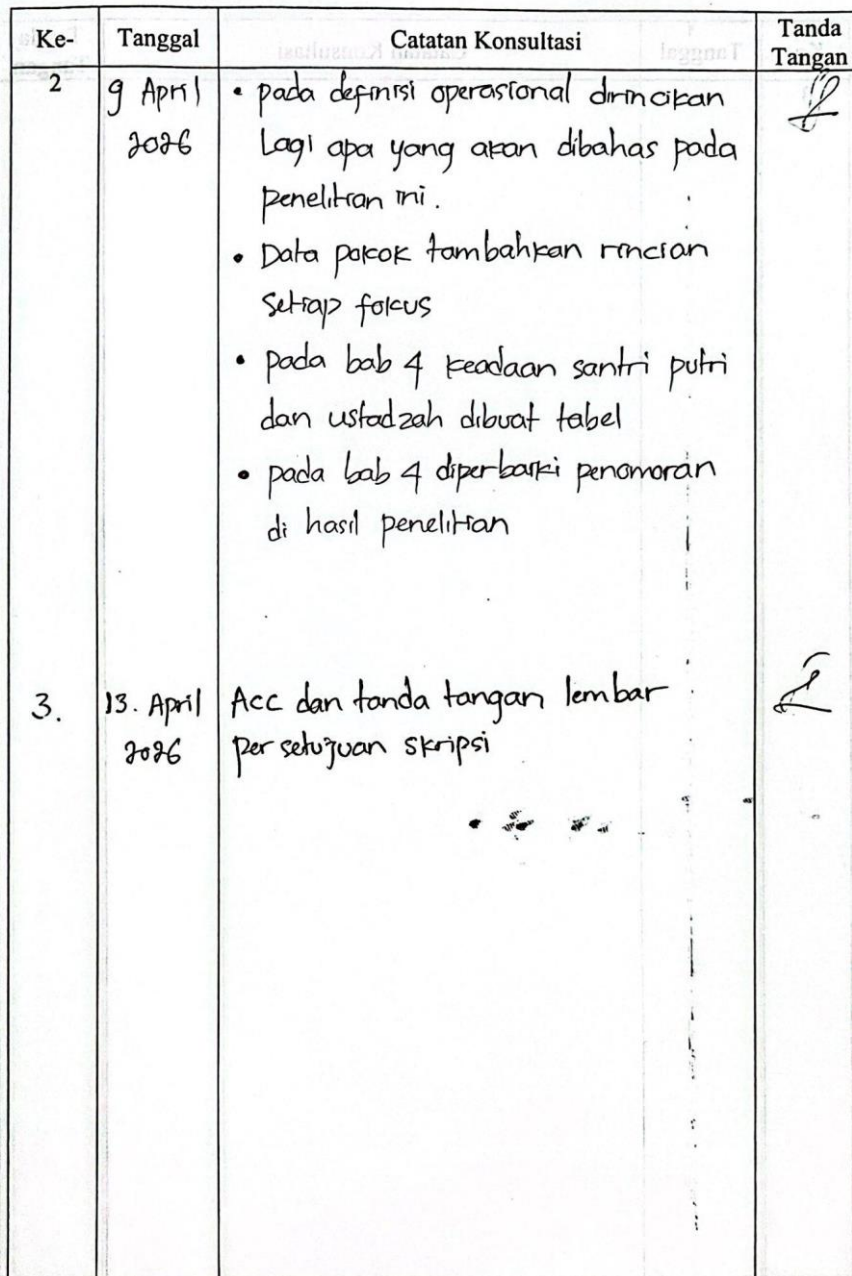 Ke- Tanggal Catatan Konsultasi Tanda Tangan
2 9 April 2026
• pada definisi operasional dirincikan
Lagi apa yang akan dibahas pada
penelitian ini.
• Data pokok tambahkan rincian
Setiap fokus
• pada bab 4 keadaan santri putri
dan ustadzah dibuat tabel
• pada bab 4 diperbaiki penomoran
di hasil penelitian
3. 13. April 2026
Acc dan tanda tangan lembar
persetujuan skripsi